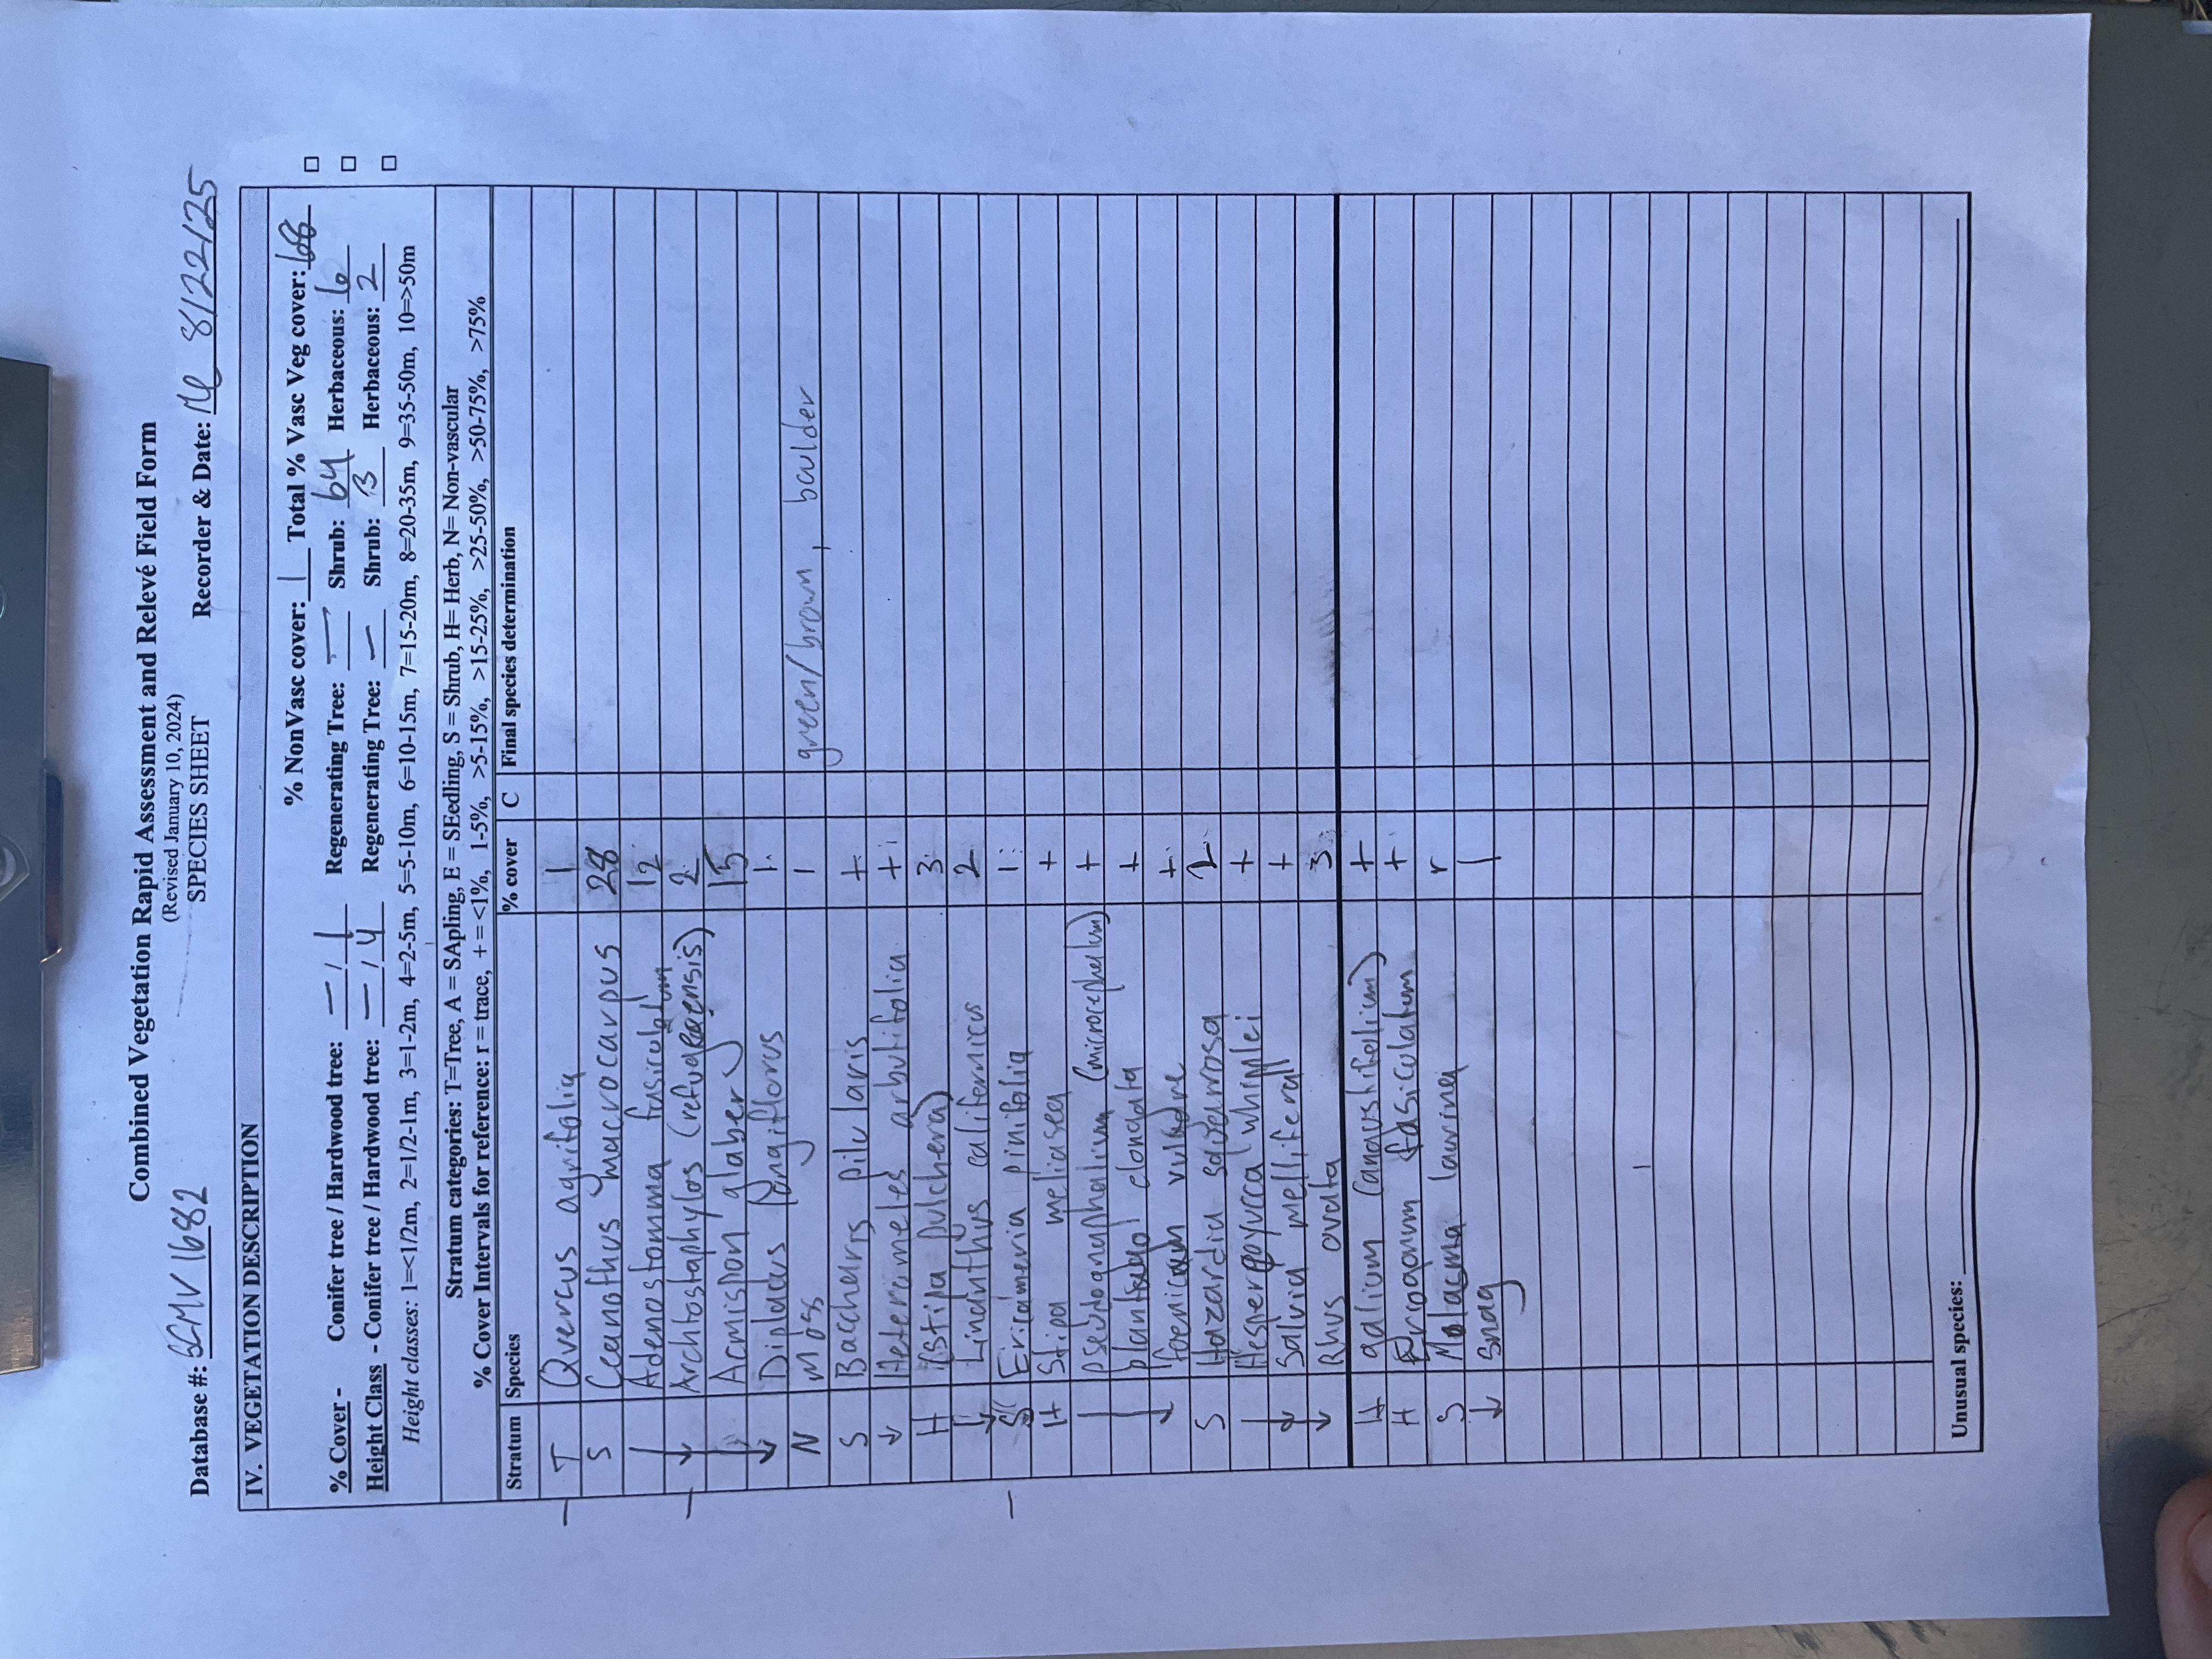 Combined Vegetation Rapid Assessment and Relevé Field Form
(Revised January 10, 2024)
SPECIES SHEET
Database #: SCMV1682 Recorder & Date: 8/22/25
IV. VEGETATION DESCRIPTION
% NonVasc cover: 1 Total % Vasc Veg cover:
% Cover - Conifer tree / Hardwood tree: — / 1 Regenerating Tree: — Shrub: 64 Herbaceous: 6
Height Class - Conifer tree / Hardwood tree: — / 4 Regenerating Tree: — Shrub: 3 Herbaceous: 2
Height classes: 1=<1/2m, 2=1/2-1m, 3=1-2m, 4=2-5m, 5=5-10m, 6=10-15m, 7=15-20m, 8=20-35m, 9=35-50m, 10=>50m
Stratum categories: T=Tree, A = SApling, E = SEedling, S = Shrub, H= Herb, N= Non-vascular
% Cover Intervals for reference: r = trace, + = <1%, 1-5%, >5-15%, >15-25%, >25-50%, >50-75%, >75%
Stratum Species % cover C Final species determination
T Quercus agrifolia 1
S Ceanothus macrocarpus 28
Adenostomma fasiculatum 12
↓ Archtostaphylos (refugioensis) 2
Acmispon glaber 15
↓ Diplacus longiflorus 1
N moss 1 green/brown, boulder
S Baccharis pilularis +
↓ Heteromeles arbutifolia +
H (Stipa pulchera) 3
↓ Lindnthus californicus 2
S Ericameria pinifolia 1
H Stipa meliasea +
psedognaphalium (microcephelum) +
plantago elongata +
↓ foenicum vulgare +
S Hazardia squarrosa 2
Hesperoyucca whipplei +
↓ Salvia mellifera +
↓ Rhus ovata 3
H galium (angustifolium) +
H Eriogonum fasiculatum +
S Malacma laurina r
↓ Snag 1
Unusual species: